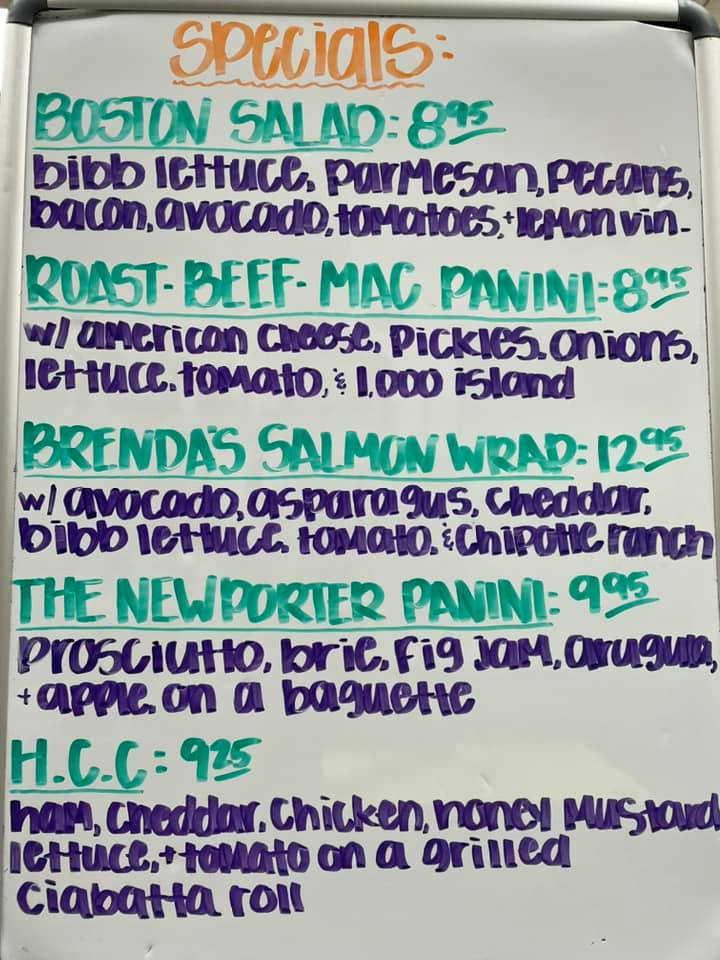 Specials:
BOSTON SALAD: 8.95
bibb lettuce, parmesan, pecans,
bacon, avocado, tomatoes, + lemon vin.
ROAST-BEEF-MAC PANINI: 8.95
w/ american cheese, pickles, onions,
lettuce, tomato, & 1,000 island
BRENDA'S SALMON WRAP: 12.95
w/ avocado, asparagus, cheddar,
bibb lettuce, tomato, & chipotle ranch
THE NEWPORTER PANINI: 9.95
prosciutto, brie, fig jam, arugula,
+ apple on a baguette
H.C.C: 9.25
ham, cheddar, chicken, honey mustard
lettuce, + tomato on a grilled
ciabatta roll